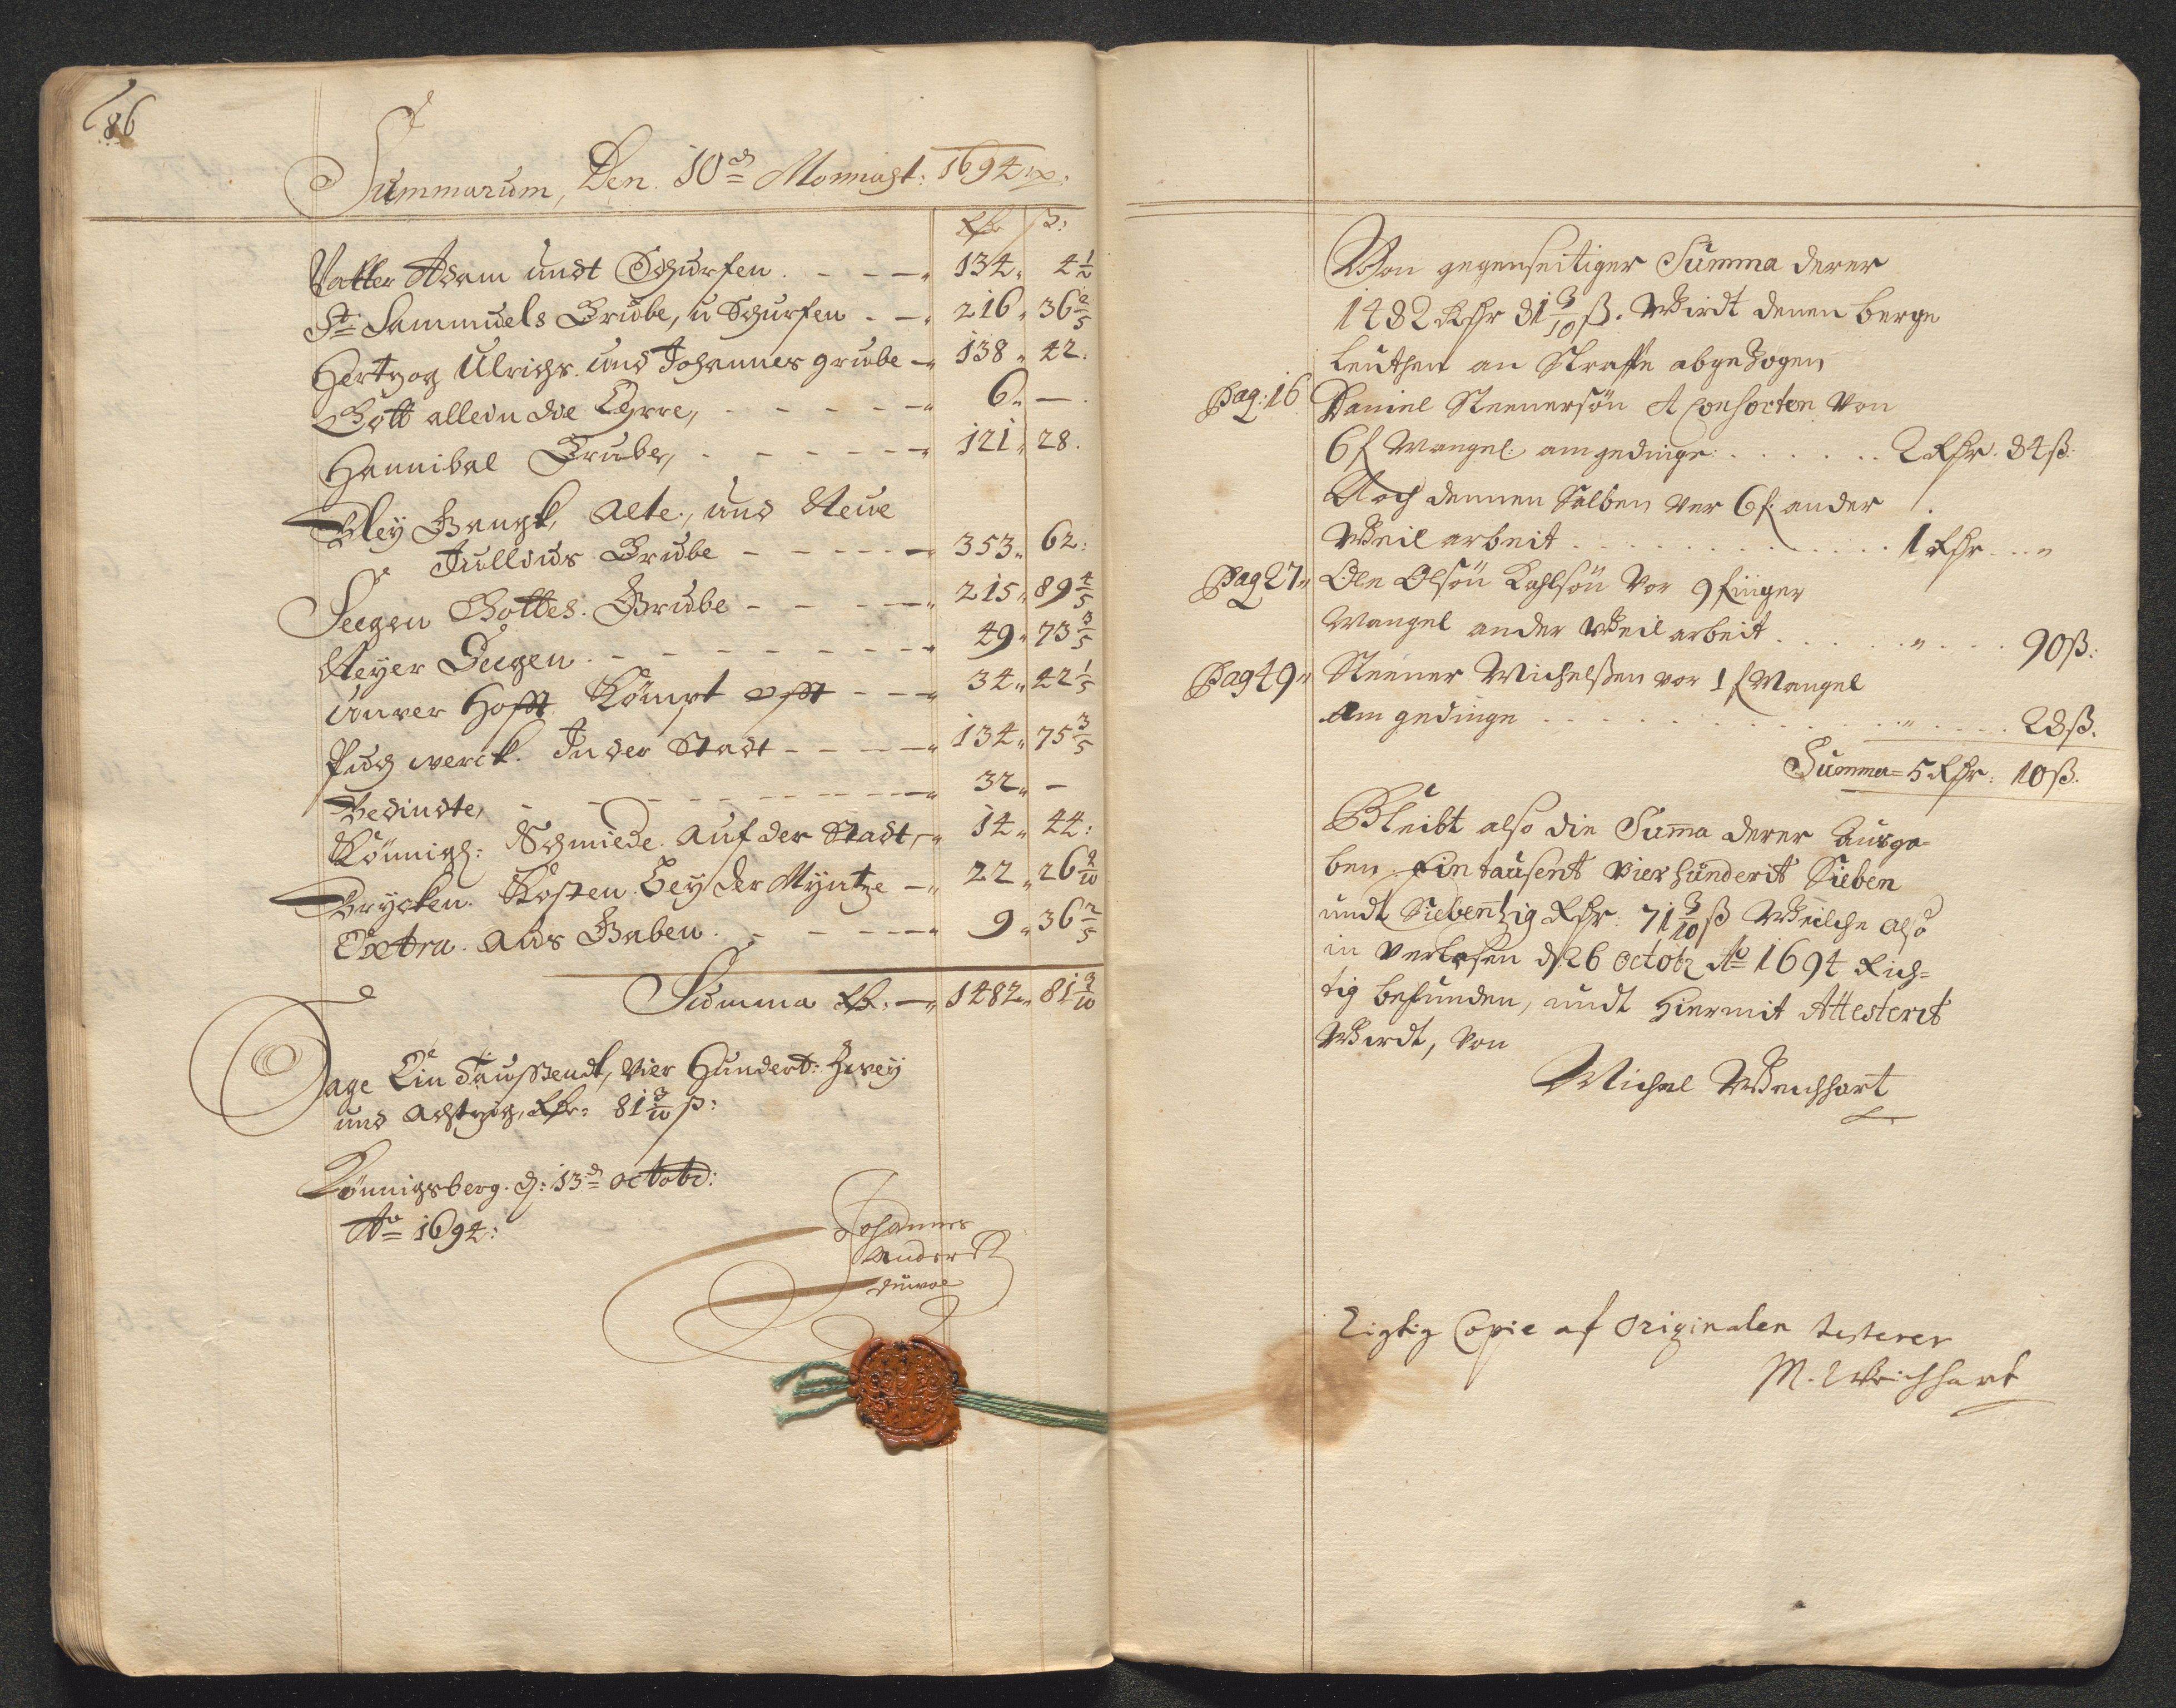 86
Summarum, Den. 10d Monnaht: 1694
Rthr ß:
Vatter Adam undt Schurfen. 134„ 4 1/2
St Sammuels Grube, u Schurfen 216„ 36 2/5
Hertzog Ulrichs. und Johannes grube 138„ 42.
Gott allein die Ehre, 6„ —
Hannibal Grube, 121„ 28.
Bley Gangk, Alte, und Neue
Jullius Grube 353„ 62:
Seegen Gottes. Grube 215„ 89 4/5
Neyer Seegen. 49„ 73 3/5
unver Hofft Kömpt offt 34„ 42 1/5
Puch werck. In der Stadt 134„ 75 3/5
Bedindte, 32„ —
Könnigl: Schmiede. auf der Stadt, 14„ 44:
Brycken. Kosten. bey der Myntze 22„ 26 4/10
Extra. Aus Gaben. 9„ 36 2/5
Summa Rthr. 1482„ 81 3/10
Sage Ein Taussendt, Vier Hundert: Zwey
und Achtzig, Rthr: 81 3/10 ß:
Könnigsberg. d: 13d octobr:
Ao 1694:
Johannes
Ander
Von gegenseitiger Summa derer
1482 Rthr 81 3/10 ß. Wirdt denen berge
leuthen an Straffe abgezogen
Pag: 16 Daniel Steenersön & Consorten von
6 f Mangel: am gedinge: 2 Rthr. 84 ß:
Noch dennen Selben ver 6 f: ander
Weil arbeit 1 Rthr „
Pag 27„ Ole Olsön Kahlsön vor 9 finger
Mangel ander Weil arbeit „ 90 ß:
Pag 49„ Steener Michelßen vor 1 f Mangel
Am gedinge „ 28 ß.
Summa= 5 Rthr: 10 ß.
Bleibt also die Suma derer Ausga-
ben Ein tausent Vier hunderit Sieben
undt Siebentzig Rthr: 71 3/10 ß Welche also
in verlesen d 26 octobr Ao 1694 Rich=
tig befunden, undt Hiermit Attesterit
Wirdt, von
Michel Weichhart
Rigtig Copie af Originalen testerer
M. Weichhart